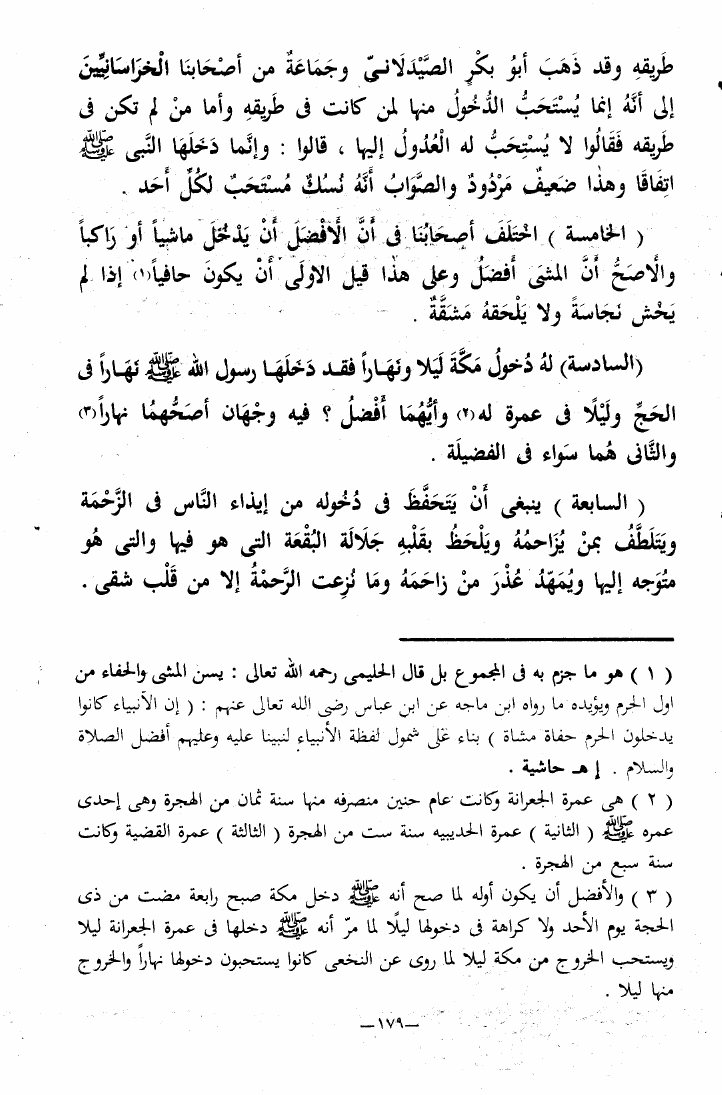 طَرِيقِهِ وقد ذَهَبَ أبوُ بكْرٍ الصَّيْدَلَانىّ وجَمَاعَةٌ من أصْحَابنَا الْخرَاسَانيِّينَ
إلى أنَّهُ إنما يُسْتَحَبُّ الدُّخُولُ منها لمن كانت فى طَرِيقهِ وأما منْ لم تكن فى
طريقه فَقَالُوا لا يُسْتَحِبُّ له الْعُدُولُ إليها ، قالوا : وإنَّما دَخَلَهَا النَّبى ﷺ
اتفَاقًا وهذٰا ضَعيفٌ مَرْدُودٌ والصَّوَابُ أنَّهُ نُسُكٌ مُسْتَحَبٌ لكُلِّ أحَد .
( الخامسة ) اخْتَلَفَ أصحَابُنَا فى أنَّ الْأَفْضَلَ أَنْ يَدْخُلَ ماشياً أو رَاكباً
والْأصَحُّ أنَّ المشىَ أفضَلُ وعلى هذٰا قيل الاولَى أنْ يكونَ حافياً(١) إذا لم
يَخْش نَجَاسَةً ولا يَلْحَقهُ مَشَقَّةٌ .
(السادسة) لهُ دُخولُ مَكَّةَ لَيلا ونَهَاراً فقد دَخَلَهَا رسول الله ﷺ نَهَاراً فى
الحَجِّ ولَيْلًا فى عمرة له(٢) وأيُّهُمَا أفْضلُ ؟ فيه وجْهَان أصَحُّهمُا نهاراً(٣)
والثَّانى هُما سَواء فى الفضيلَة .
( السابعة ) ينبغى أنْ يَتَحَفَّظَ فى دُخُوله من إيذاء النَّاس فى الزَّحْمَة
ويَتَلَطَّفُ بمنْ يُزَاحمُهُ ويَلْحَظُ بقَلْبهِ جَلَالَة البُقْعَة التى هو فيها والتى هُو
متُوَجه إليها ويُمَهّدُ عُذْرَ منْ زاحَمَهُ ومَا نُزِعت الرَّحمْةُ إلا من قَلْب شقى .
( ١ ) هو ما جزم به فى المجموع بل قال الحليمى رحمه الله تعالى : يسن المشى والحفاء من
اول الحرم ويؤيده ما رواه ابن ماجه عن ابن عباس رضى الله تعالى عنهم : ( إن الأنبياء كانوا
يدخلون الحرم حفاة مشاة ) بناء على شمول لفظة الأنبياء لنبينا عليه وعليهم أفضل الصلاة
والسلام . إ هـ حاشية .
( ٢ ) هى عمرة الجعرانة وكانت عام حنين منصرفه منها سنة ثمان من الهجرة وهى إحدى
عمره ﷺ ( الثانية ) عمرة الحديبيه سنة ست من الهجرة ( الثالثة ) عمرة القضية وكانت
سنة سبع من الهجرة .
( ٣ ) والأفضل أن يكون أوله لما صح أنه ﷺ دخل مكة صبح رابعة مضت من ذى
الحجة يوم الأحد ولا كراهة فى دخولها ليلًا لما مرّ أنه ﷺ دخلها فى عمرة الجعرانة ليلا
ويستحب الخروج من مكة ليلا لما روى عن النخعى كانوا يستحبون دخولها نهاراً والخروج
منها ليلا .
—١٧٩—